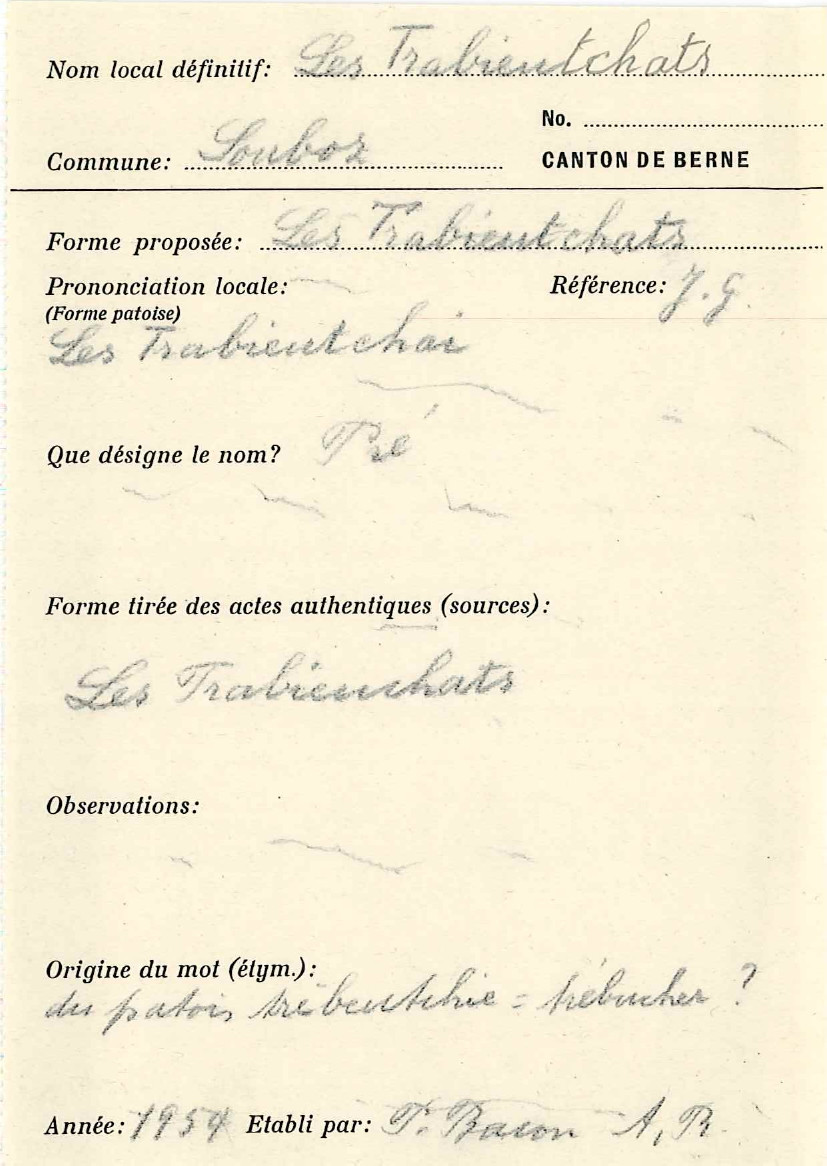 Nom local définitif: Les Trabieutchats
No.
Commune: Souboz CANTON DE BERNE
Forme proposée: Les Trabieutchats
Prononciation locale: Référence: J. G.
(Forme patoise)
Les Trabieutchai
Que désigne le nom? Pré
Forme tirée des actes authentiques (sources):
Les Trabieuchats
Observations:
Origine du mot (étym.):
du patois trébeutchie = trébucher ?
Année: 1954 Etabli par: P. Bacon A, R.